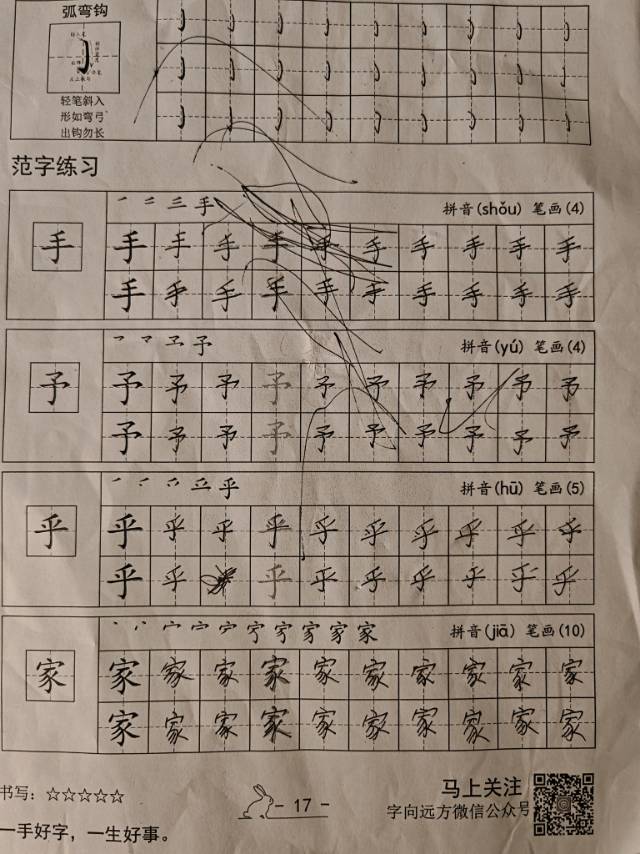 弧弯钩
轻笔斜入
形如弯弓
出钩勿长
范字练习
手 拼音(shǒu) 笔画(4)
手 手 手 手 手 手 手 手 手 手 手
手 手 手 手 手 手 手 手 手 手
予 拼音(yú) 笔画(4)
予 予 予 予 予 予 予 予 予 予 予
予 予 予 予 予 予 予 予 予 予
乎 拼音(hū) 笔画(5)
乎 乎 乎 乎 乎 乎 乎 乎 乎 乎 乎
乎 乎 乎 乎 乎 乎 乎 乎 乎
家 拼音(jiā) 笔画(10)
家 家 家 家 家 家 家 家 家 家 家
家 家 家 家 家 家 家 家 家 家
书写：☆☆☆☆☆
一手好字，一生好事。
- 17 -
马上关注
字向远方微信公众号